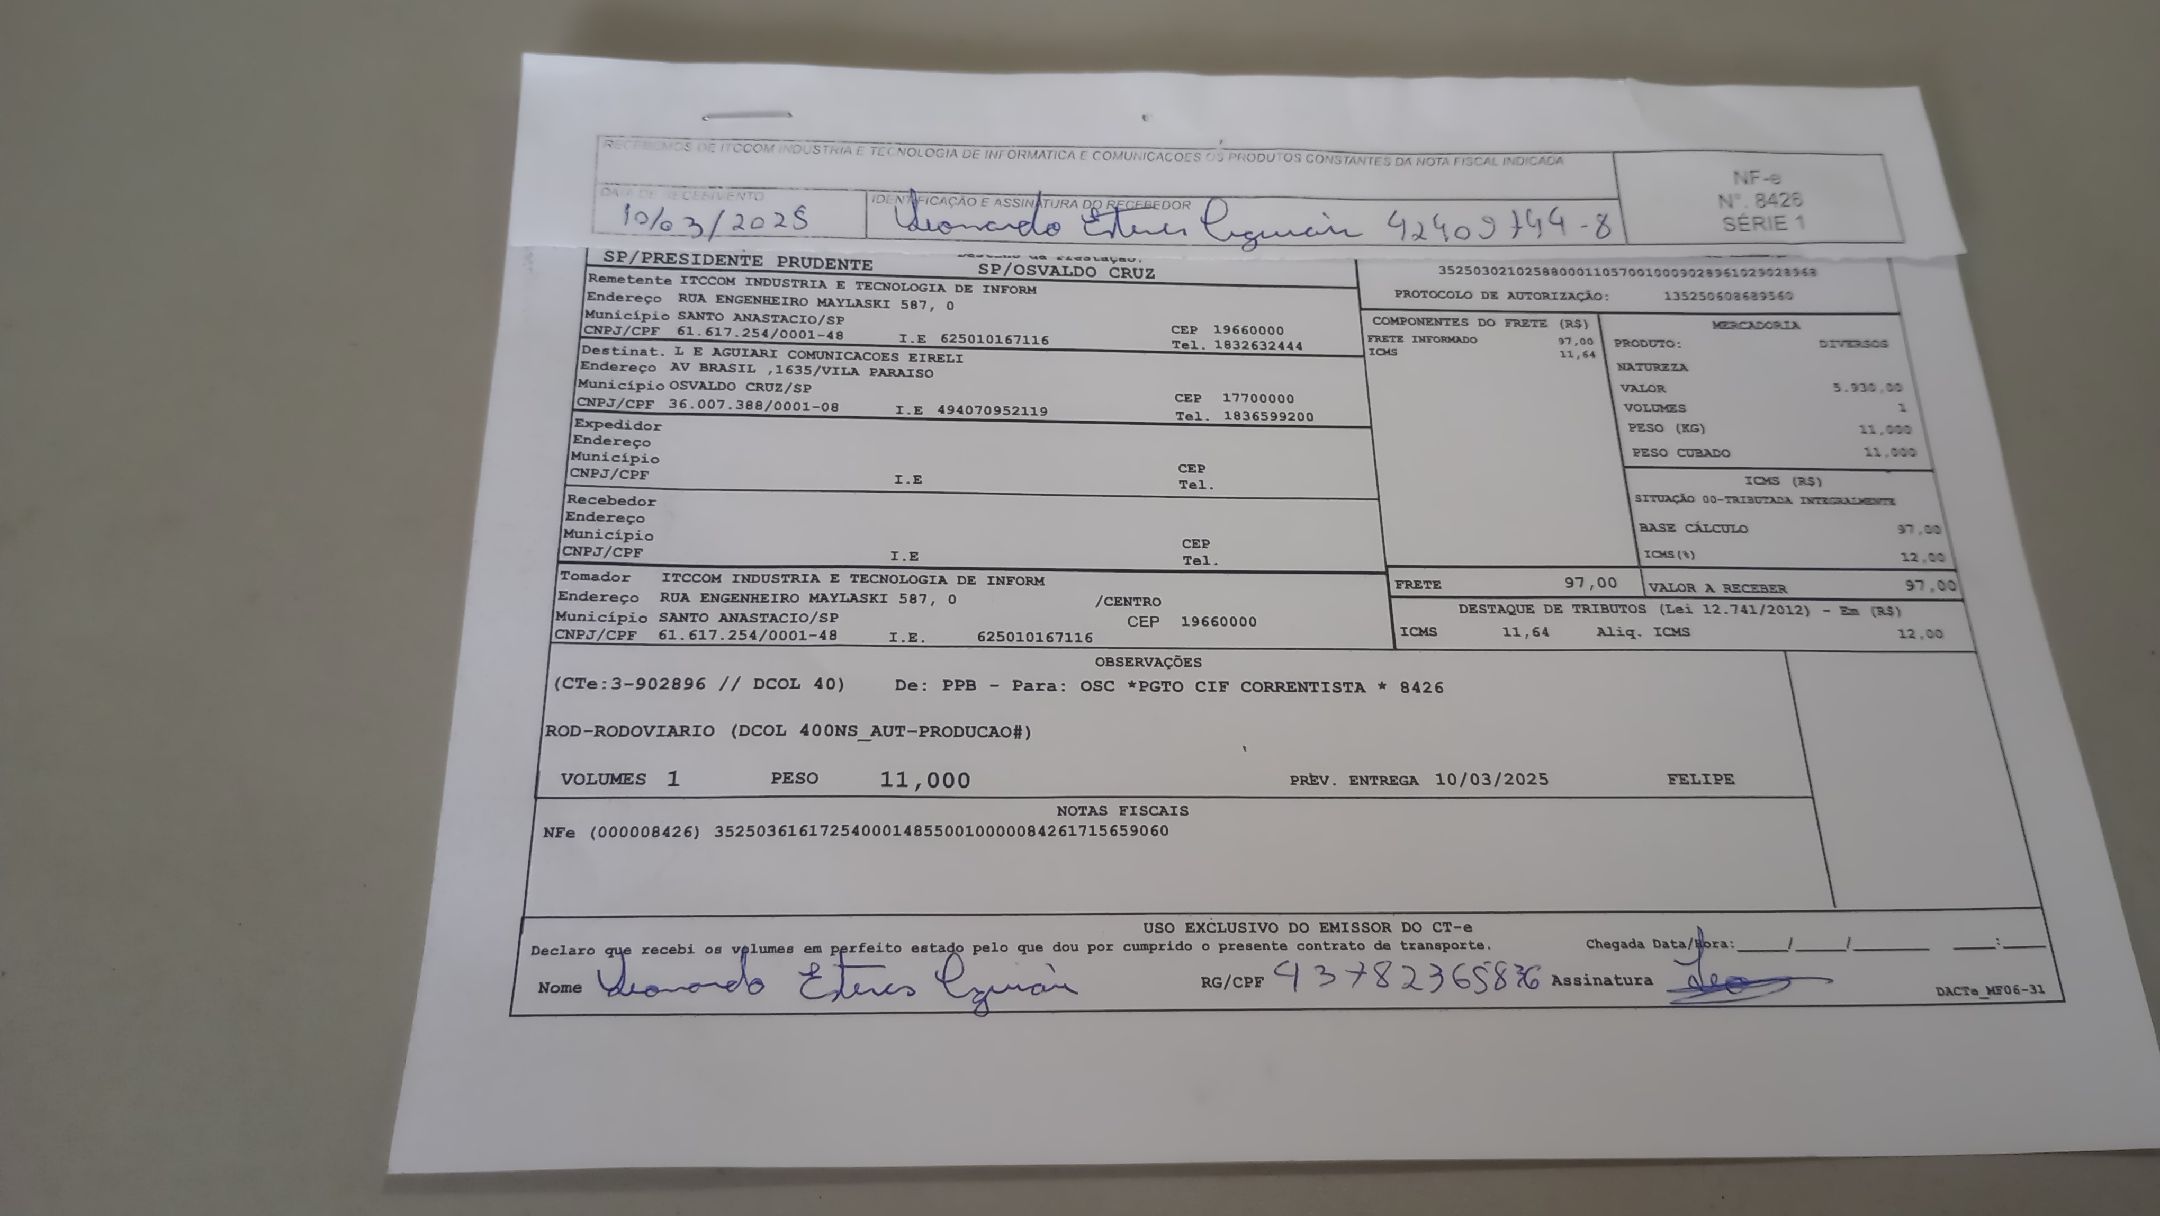 RECEBEMOS DE ITCCOM INDUSTRIA E TECNOLOGIA DE INFORMATICA E COMUNICACOES OS PRODUTOS CONSTANTES DA NOTA FISCAL INDICADA
NF-e
Nº. 8426
SÉRIE 1
DATA DE RECEBIMENTO
IDENTIFICAÇÃO E ASSINATURA DO RECEBEDOR
10/03/2025 Leonardo Esteves 42409744-8
SP/PRESIDENTE PRUDENTE
SP/OSVALDO CRUZ
Remetente ITCCOM INDUSTRIA E TECNOLOGIA DE INFORM
Endereço RUA ENGENHEIRO MAYLASKI 587, 0
Município SANTO ANASTACIO/SP CEP 19660000
CNPJ/CPF 61.617.254/0001-48 I.E 625010167116 Tel. 1832632444
Destinat. L E AGUIARI COMUNICACOES EIRELI
Endereço AV BRASIL ,1635/VILA PARAISO
Município OSVALDO CRUZ/SP CEP 17700000
CNPJ/CPF 36.007.388/0001-08 I.E 494070952119 Tel. 1836599200
Expedidor
Endereço
Município CEP
CNPJ/CPF I.E Tel.
Recebedor
Endereço
Município CEP
CNPJ/CPF I.E Tel.
Tomador ITCCOM INDUSTRIA E TECNOLOGIA DE INFORM
Endereço RUA ENGENHEIRO MAYLASKI 587, 0 /CENTRO
Município SANTO ANASTACIO/SP CEP 19660000
CNPJ/CPF 61.617.254/0001-48 I.E. 625010167116
PROTOCOLO DE AUTORIZAÇÃO: 135250608689560
COMPONENTES DO FRETE (R$)
FRETE INFORMADO 97,00
ICMS 11,64
MERCADORIA
PRODUTO: DIVERSOS
NATUREZA
VALOR 5.930,00
VOLUMES 1
PESO (KG) 11,000
PESO CUBADO 11,000
ICMS (R$)
SITUAÇÃO 00-TRIBUTADA INTEGRALMENTE
BASE CÁLCULO 97,00
ICMS(%) 12,00
FRETE 97,00 VALOR A RECEBER 97,00
DESTAQUE DE TRIBUTOS (Lei 12.741/2012) - Em (R$)
ICMS 11,64 Aliq. ICMS 12,00
OBSERVAÇÕES
(CTe:3-902896 // DCOL 40) De: PPB - Para: OSC *PGTO CIF CORRENTISTA * 8426
ROD-RODOVIARIO (DCOL 400NS_AUT-PRODUCAO#)
VOLUMES 1 PESO 11,000 PREV. ENTREGA 10/03/2025 FELIPE
NOTAS FISCAIS
NFe (000008426) 35250361617254000148550010000084261715659060
USO EXCLUSIVO DO EMISSOR DO CT-e
Declaro que recebi os volumes em perfeito estado pelo que dou por cumprido o presente contrato de transporte. Chegada Data/Hora:____/____/______ ____:____
Nome Leonardo Esteves RG/CPF 43782365836 Assinatura Leo
DACTe_MF06-31